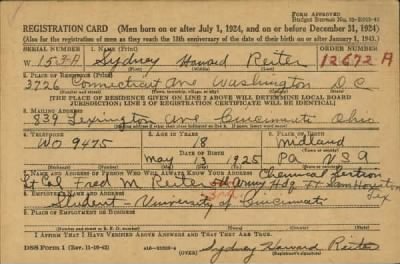 FORM APPROVED
REGISTRATION CARD (Men born on or after July 1, 1924, and on or before December 31, 1924)
(Also for the registration of men as they reach the 18th anniversary of the date of their birth on or after January 1, 1943.)
SERIAL NUMBER 1. NAME (Print) ORDER NUMBER
W 153-A Sydney Howard Reiter 12672-A
2. PLACE OF RESIDENCE (Print)
3726 Connecticut Ave Washington D C
[THE PLACE OF RESIDENCE GIVEN ON LINE 2 ABOVE WILL DETERMINE LOCAL BOARD
JURISDICTION; LINE 2 OF REGISTRATION CERTIFICATE WILL BE IDENTICAL]
3. MAILING ADDRESS
839 Lexington Ave Cincinnati Ohio
4. TELEPHONE 5. AGE IN YEARS 6. PLACE OF BIRTH
WO 9475 18 Midland
DATE OF BIRTH
May 13 1925 PA USA
7. NAME AND ADDRESS OF PERSON WHO WILL ALWAYS KNOW YOUR ADDRESS Chemical Section
Lt Col Fred M Reiter Army Hdq Ft Sam Houston
Tex
Student - University of Cincinnati
9. PLACE OF EMPLOYMENT OR BUSINESS
I AFFIRM THAT I HAVE VERIFIED ABOVE ANSWERS AND THAT THEY ARE TRUE.
DSS Form 1 (Rev. 11-16-42) (OVER) Sydney Howard Reiter